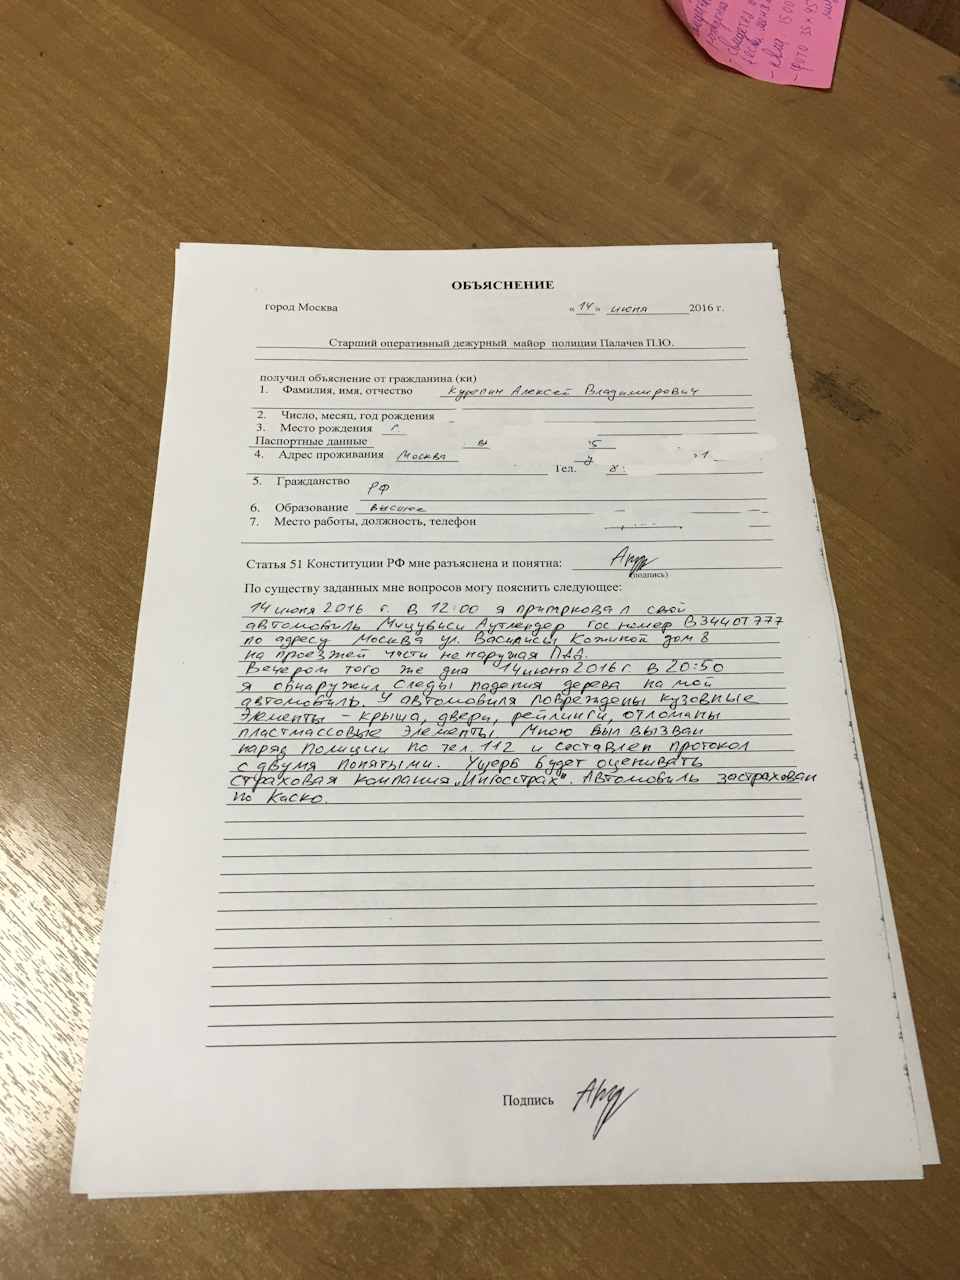 рождения
- свидетел о
- квит 1500
- фото 35×45
ОБЪЯСНЕНИЕ
город Москва «14» июня 2016 г.
Старший оперативный дежурный майор полиции Палачев П.Ю.
получил объяснение от гражданина (ки)
1. Фамилия, имя, отчество Курепин Алексей Владимирович
2. Число, месяц, год рождения
3. Место рождения г.
Паспортные данные
4. Адрес проживания Москва
Тел. 8
5. Гражданство РФ
6. Образование высшее
7. Место работы, должность, телефон
Статья 51 Конституции РФ мне разъяснена и понятна:
(подпись)
По существу заданных мне вопросов могу пояснить следующее:
14 июня 2016 г. в 12:00 я припарковал свой
автомобиль Мицубиси Аутлендер гос номер В344ОТ777
по адресу Москва ул. Василисы Кожиной дом 8
на проезжей части не наружая ПДД.
Вечером того же дня 14 июня 2016 г. в 20:50
я обнаружил следы падения дерева на мой
автомобиль. У автомобиля повреждены кузовные
элементы - крыша, двери, рейлинги, отломаны
пластмассовые элементы. Мною был вызван
наряд полиции по тел. 112 и составлен протокол
с двумя понятыми. Ущерб будет оценивать
страховая компания „Ингосстрах". Автомобиль застрахован
по Каско.
Подпись